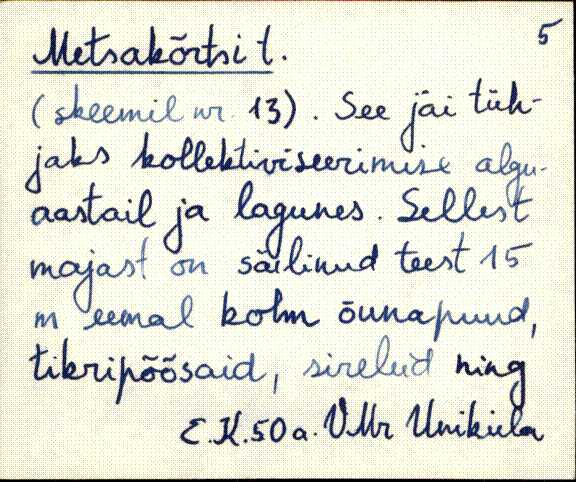 5
Metsakõrtsi t.
(skeemil nr. 13). See jäi tüh-
jaks kollektiviseerimise algu-
aastail ja lagunes. Sellest
majast on säilinud teest 15
m eemal kolm õunapuud,
tikripõõsaid, sireleid ning
E.K. 50 a. VMr Uniküla